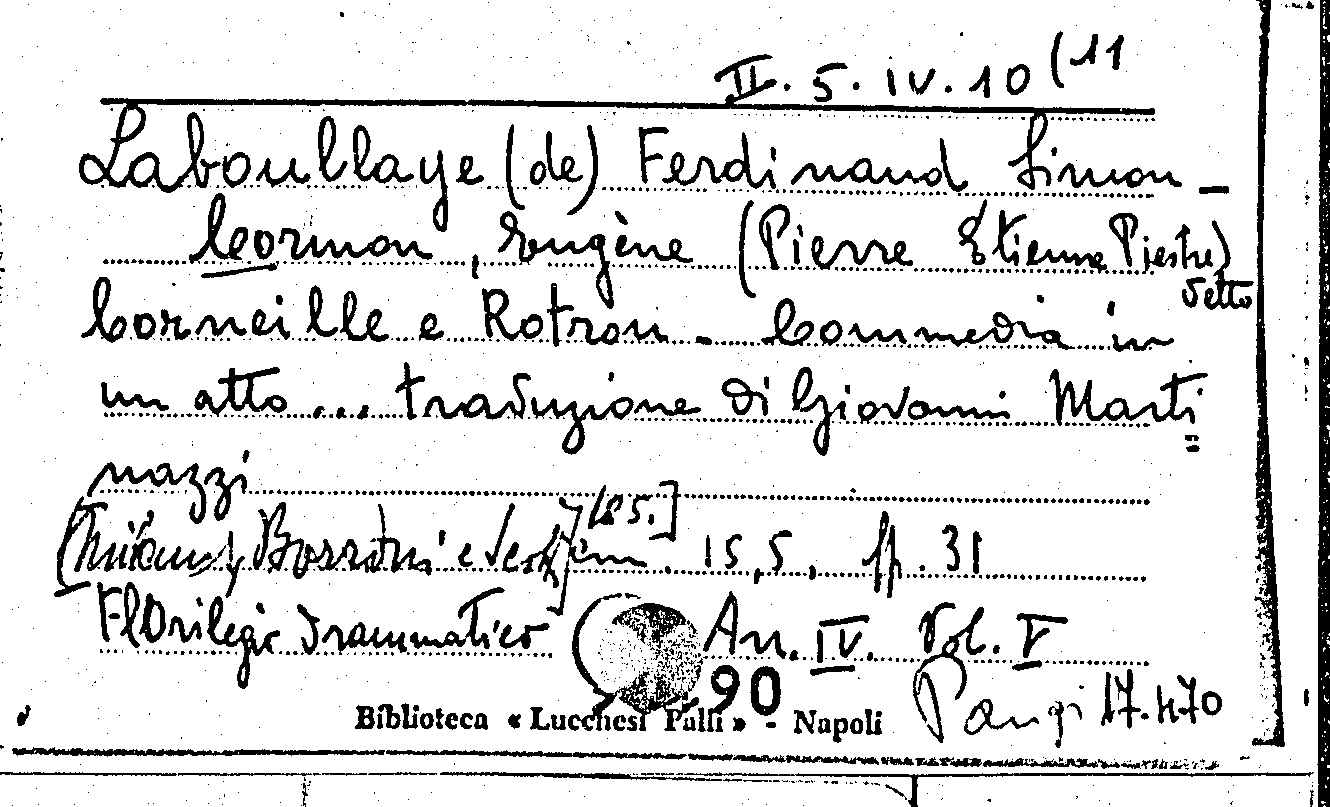 II. 5. IV. 10 (11
Laboullaye (de) Ferdinand Simon -
Cormon, Eugène (Pierre Etienne Piestre)
detto
Corneille e Rotrou. Commedia in
un atto ... traduzione di Giovanni Marti
nazzi
[Milano, Borroni e Scotti] 185.]
cm. 15,5. pp. 31
Florilegio drammatico An. IV. Vol. V
90
Biblioteca « Lucchesi Palli » - Napoli
Pangi 17.470